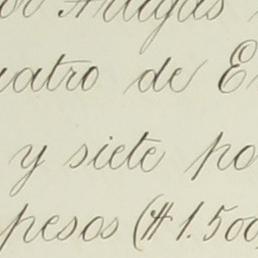 or Artigas
uatro de E
y siete po
pesos ($1.500